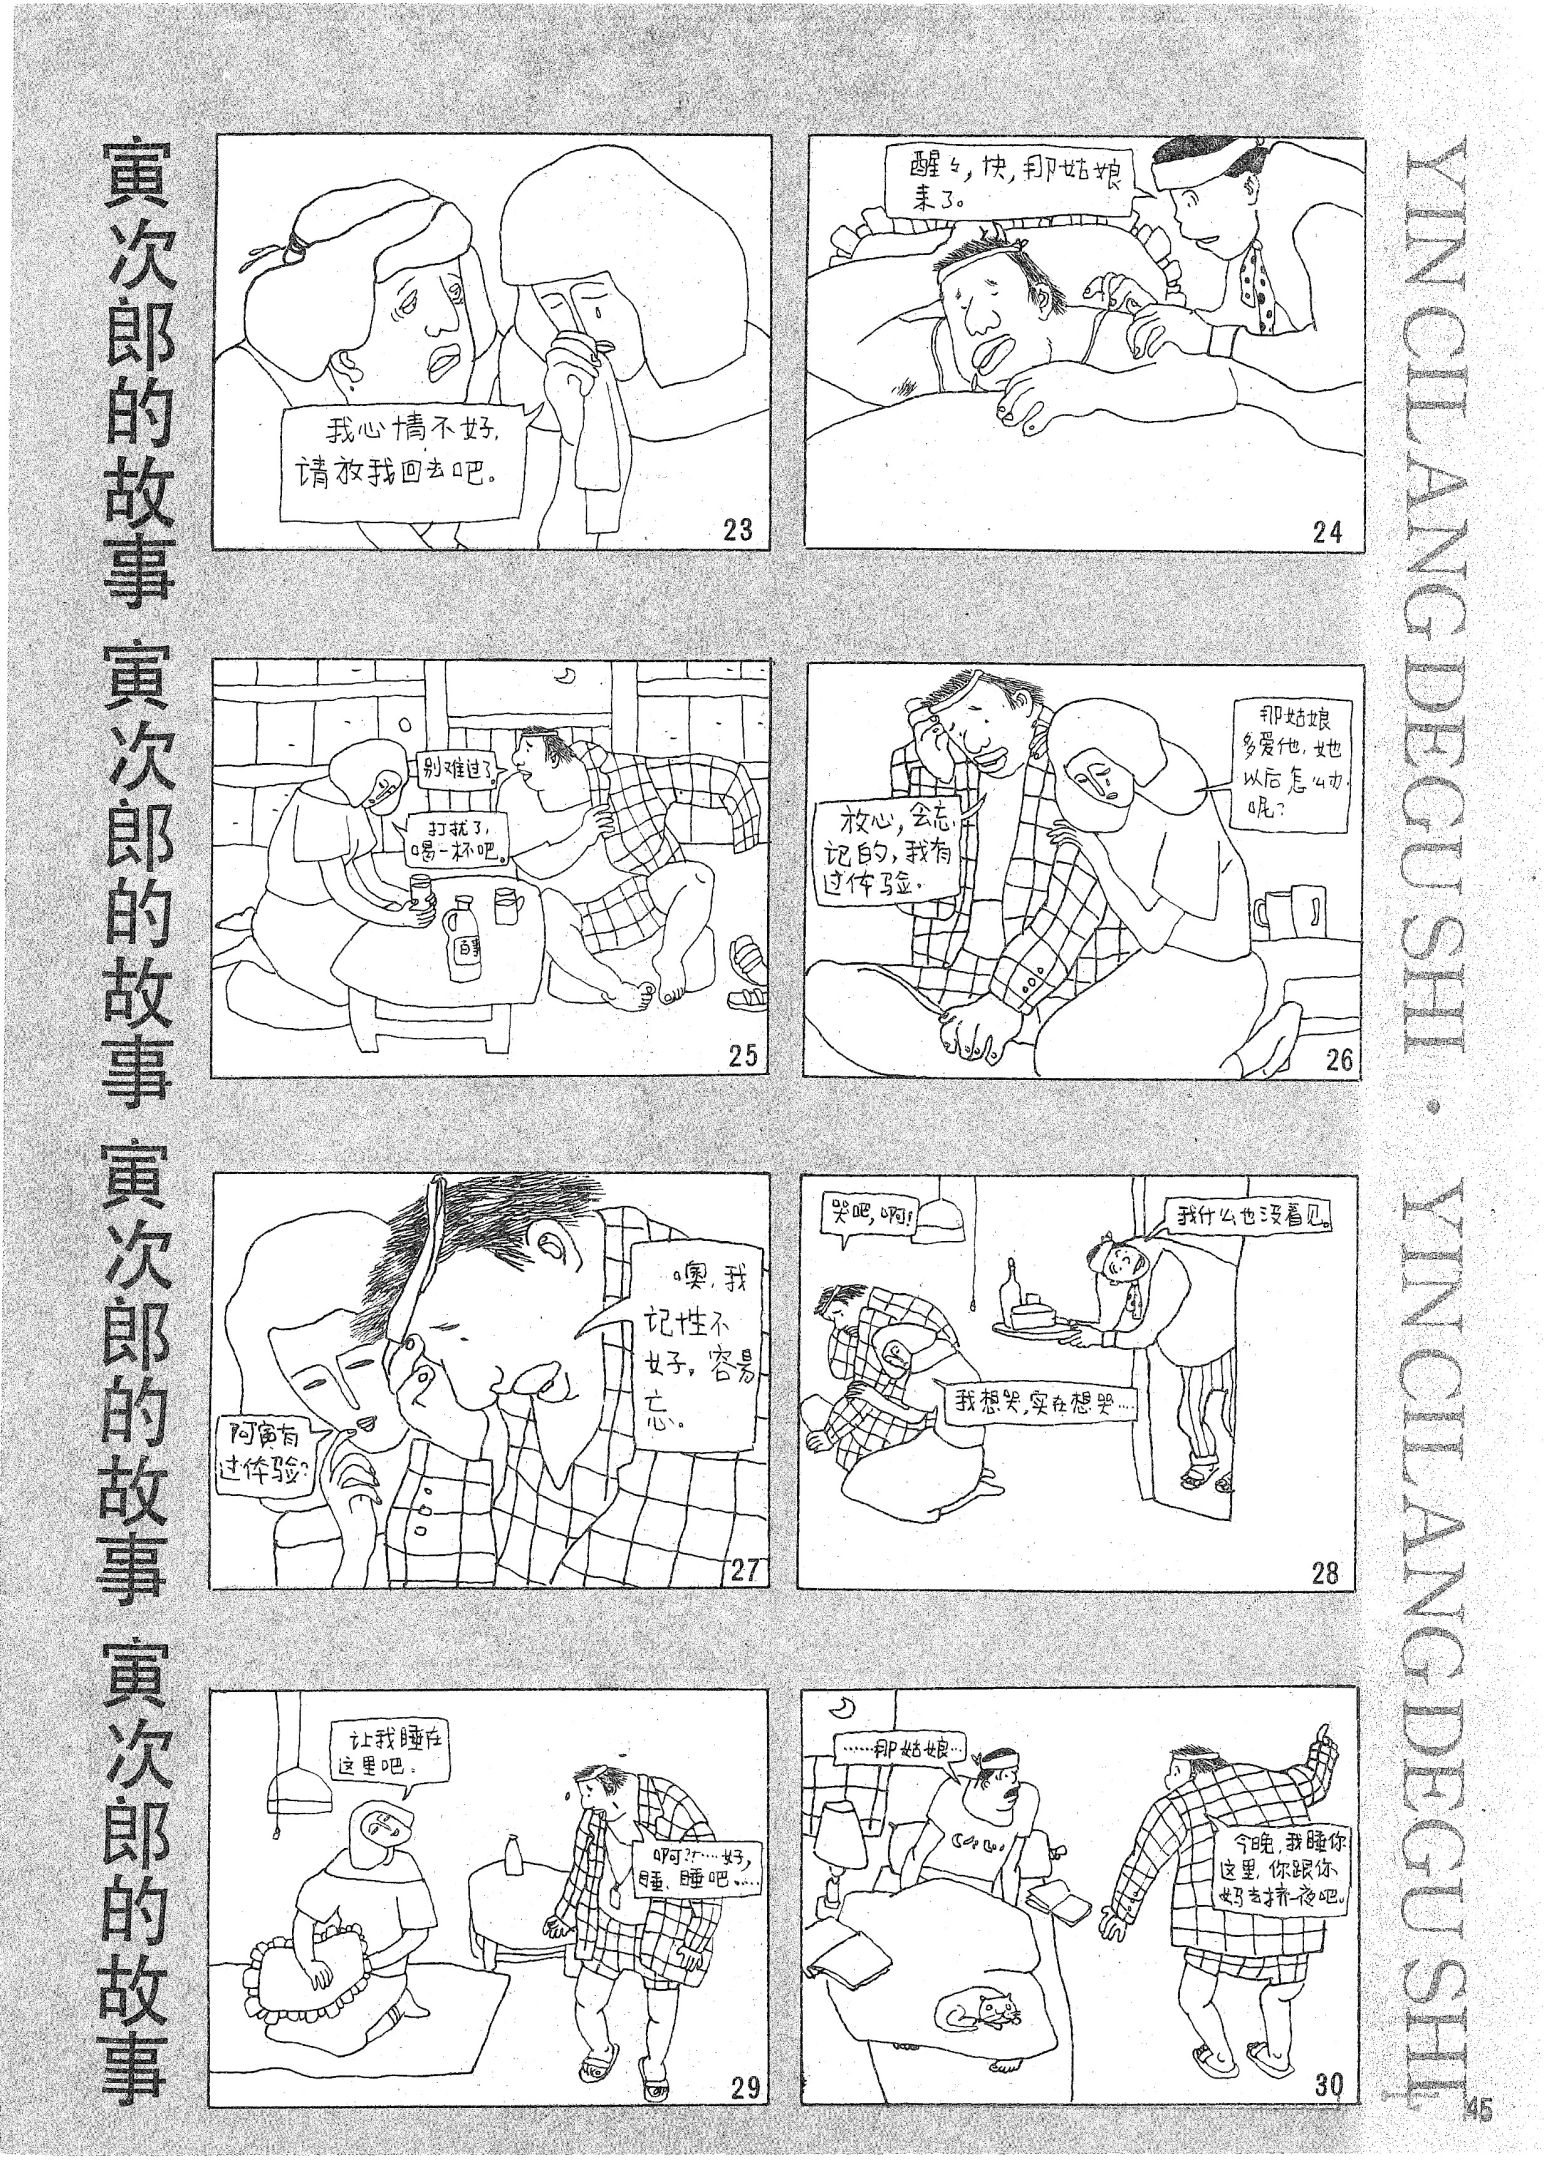 寅次郎的故事 寅次郎的故事 寅次郎的故事 寅次郎的故事
我心情不好,
请放我回去吧。
23
醒々,快,那姑娘
来了。
24
别难过了。
打扰了,
喝一杯吧。
百事
25
那姑娘
多爱他,她
以后怎么办
呢?
放心,会忘
记的,我有
过体验.
26
噢,我
记性不
好,容易
忘。
阿寅有
过体验?
27
哭吧,啊!
我什么也没看见。
我想哭,实在想哭……
28
让我睡在
这里吧.
啊?!……好,
睡、睡吧……
29
……那姑娘…
今晚,我睡你
这里,你跟你
妈去挤一夜吧。
30
YINCILANGDEGUSHI · YINCILANGDEGUSHI
45